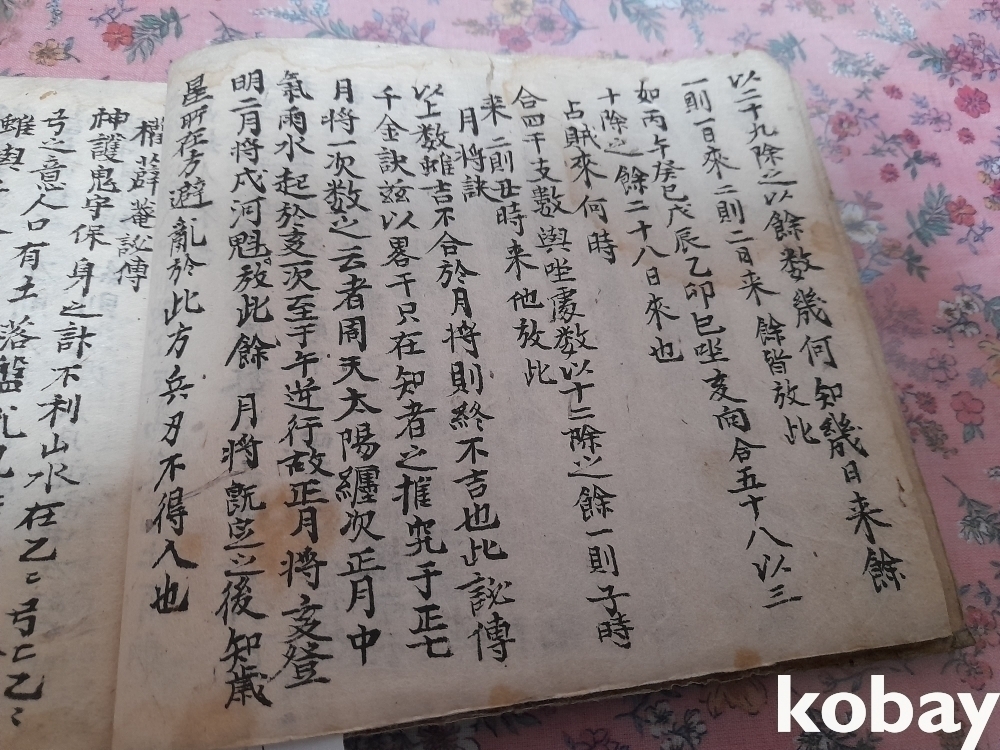 以二十九除之以餘数幾何知幾日来餘
一則一日來二則二日来餘皆放此
如丙午癸巳戊辰乙卯巳坐亥向合五十八以三
十除之餘二十八日來也
占賊來何時
合四干支數與坐處数以十二除之餘一則子時
来二則丑時来他放此
月將訣
以上数雖吉不合於月將則終不吉也此訟傳
千金訣玆以畧干只在知者之推究于正七
月將一次数之云者周天太陽纏次正月中
氣雨水起於亥次至于午逆行故正月將亥登
明二月將戌河魁放此餘 月將旣定之後知歲
星所在方避亂於此方兵刃不得入也
權薜菴訟傳
神護鬼守保身之計不利山水在乙〻弓匚乙〻
弓之意人口有土落盤
雖與
kobay